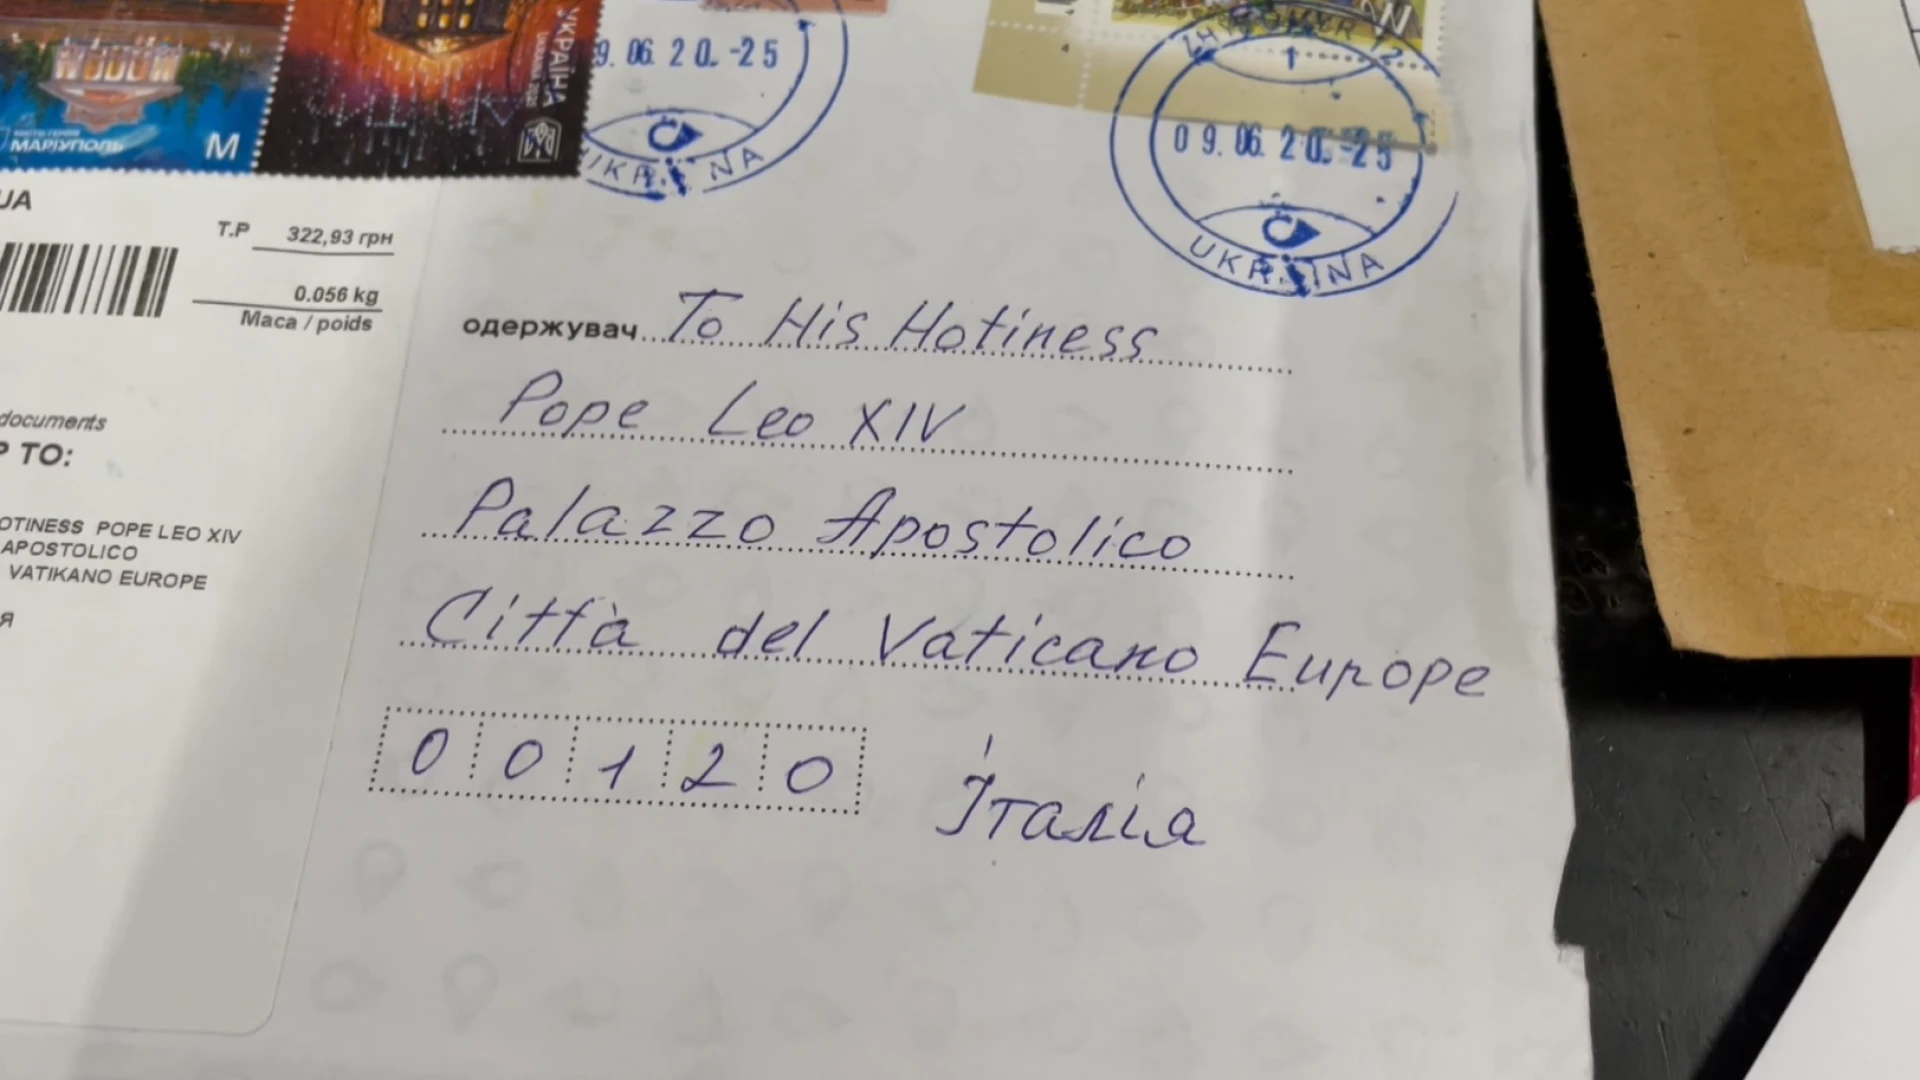 УКРАЇНА
UKRAINE
МІСТО ГЕРОЇВ
МАРІУПОЛЬ M
9. 06. 20.-25
UKRAINA
N
ZHYTOMYR 12
1
09. 06. 20.-25
UKRAINA
UA
T.P 322,93 грн
0.056 kg
Маса / poids
documents
P TO:
OTINESS POPE LEO XIV
APOSTOLICO
VATIKANO EUROPE
Я
одержувач To His Hotiness
Pope Leo XIV
Palazzo Apostolico
Città del Vaticano Europe
00120 Італія